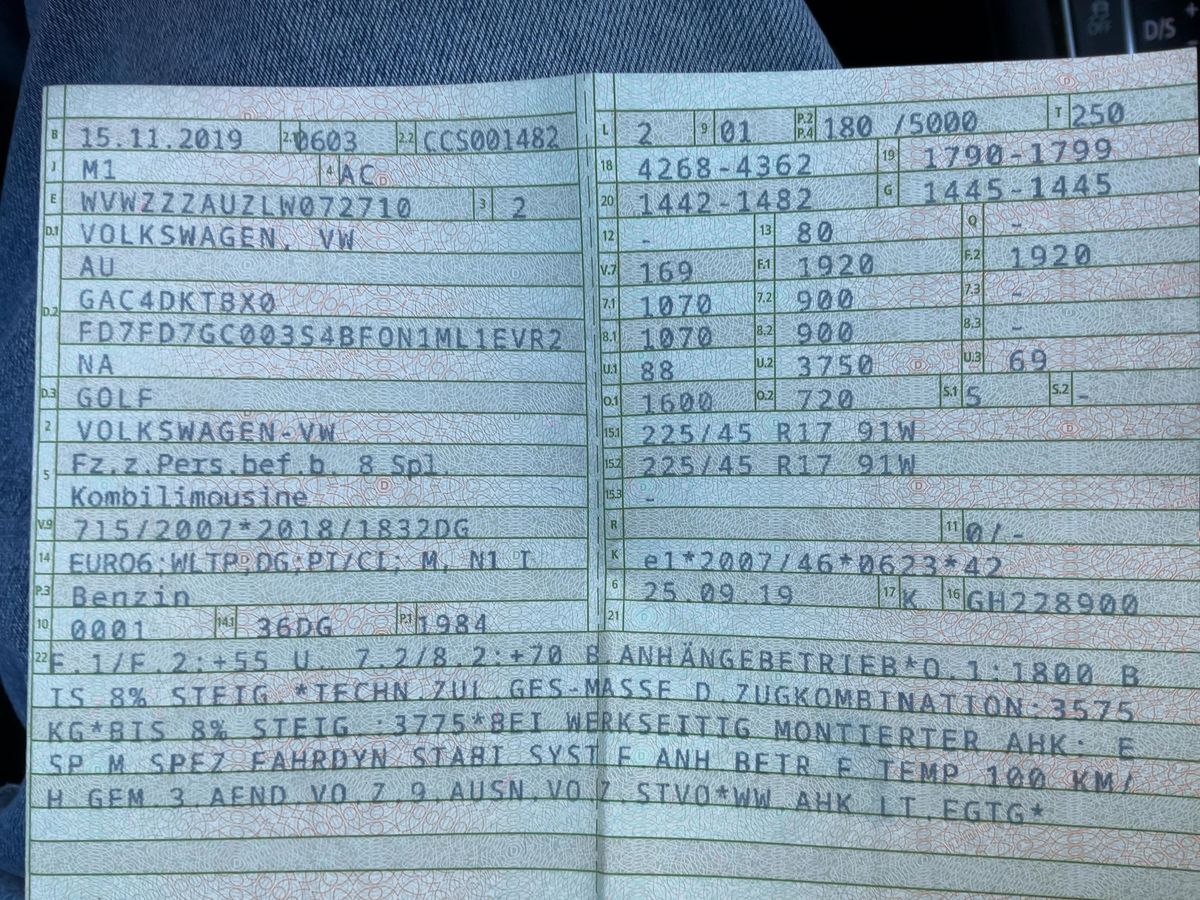 D/S +
OFF
B 15.11.2019 2.1 0603 2.2 CCS001482
J M1 4 AC
E WVWZZZAUZLW072710 3 2
D.1 VOLKSWAGEN, VW
AU
D.2 GAC4DKTBX0
FD7FD7GC003S4BFON1ML1EVR2
NA
D.3 GOLF
2 VOLKSWAGEN-VW
5 Fz.z.Pers.bef.b. 8 Spl.
Kombilimousine
V.9 715/2007*2018/1832DG
14 EURO6;WLTP;DG;PI/CI; M, N1 I
P.3 Benzin
10 0001 14.1 36DG P.1 1984
L 2 9 01 P.2 P.4 180 /5000 T 250
18 4268-4362 19 1790-1799
20 1442-1482 G 1445-1445
12 - 13 80 Q -
V.7 169 F.1 1920 F.2 1920
7.1 1070 7.2 900 7.3 -
8.1 1070 8.2 900 8.3 -
U.1 88 U.2 3750 U.3 69
O.1 1600 O.2 720 S.1 5 S.2 -
15.1 225/45 R17 91W
15.2 225/45 R17 91W
15.3 -
R 11 0/-
K e1*2007/46*0623*42
6 25.09.19 17 K 16 GH228900
21
22 F.1/F.2:+55 U. 7.2/8.2:+70 B.ANHÄNGEBETRIEB*O.1:1800 B
IS 8% STEIG.*TECHN.ZUL.GES-MASSE D.ZUGKOMBINATION:3575
KG*BIS 8% STEIG.:3775*BEI WERKSEITIG MONTIERTER AHK: E
SP M.SPEZ.FAHRDYN.STABI.SYST.F.ANH.BETR.F.TEMP.100 KM/
H GEM.3.AEND.VO.Z.9.AUSN.VO.Z.STVO*WW.AHK LT.EGTG*